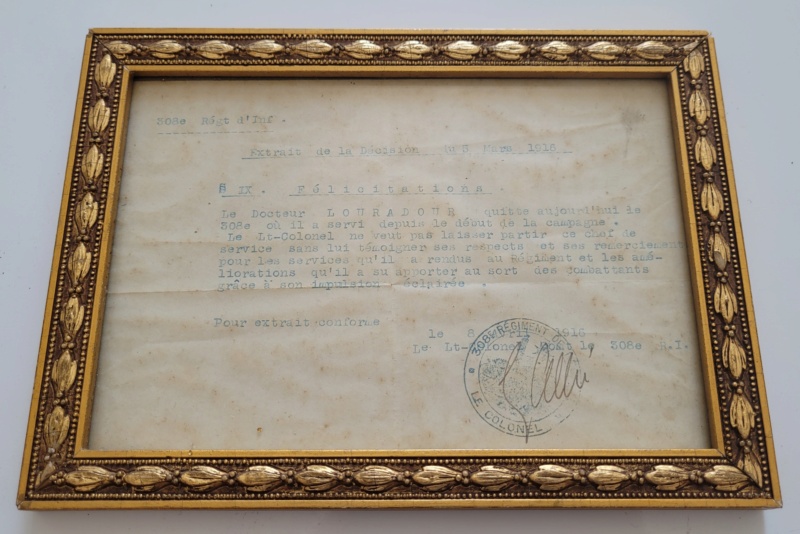 308e Régt d'Inf.
Extrait de la Décision 3 Mars 1916
§ IX. Félicitations
Le Docteur LOURADOUR quitte aujourd'hui le
308e où il a servi depuis le début de la campagne.
Le Lt-Colonel ne veut pas laisser partir ce chef de
service sans lui témoigner ses respects et ses remerciement
pour les services qu'il a rendus au Régiment et les amé-
liorations qu'il a su apporter au sort des combattants
grâce à son impulsion éclairée.
Pour extrait conforme
le 8 1916
Le Lt-Colonel le 308e R.I.
308e RÉGIMENT
LE COLONEL